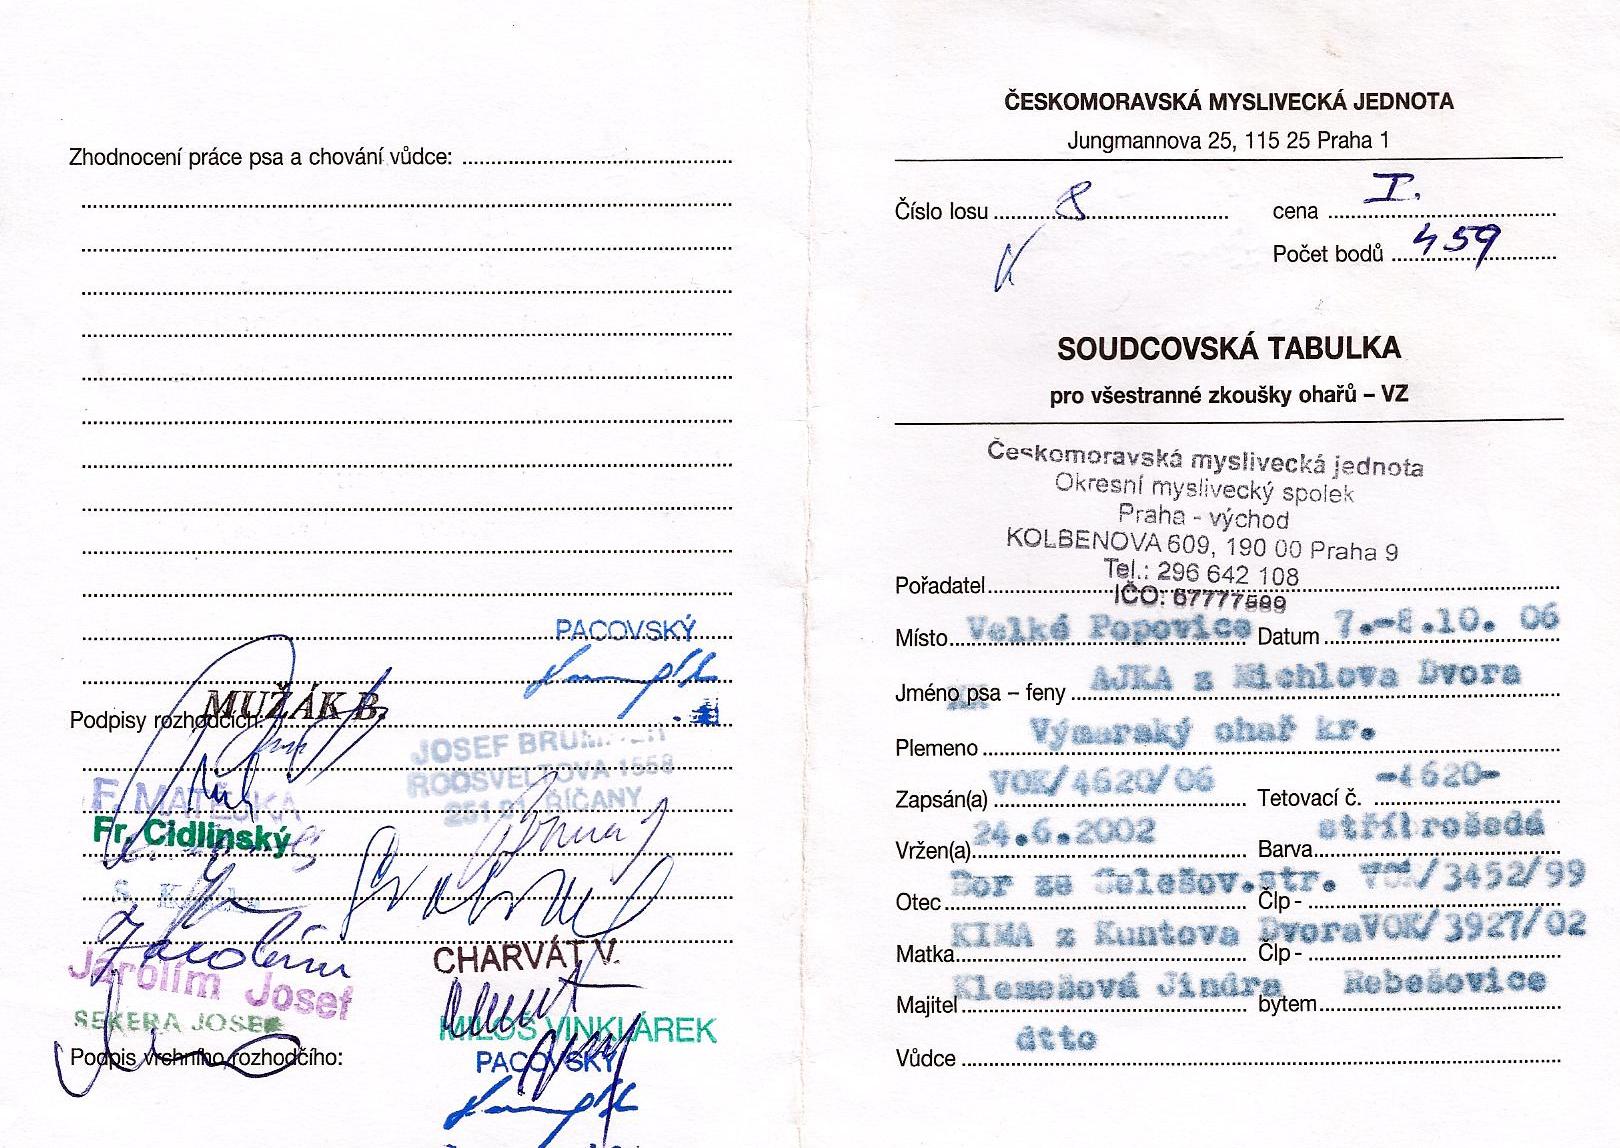 Zhodnocení práce psa a chování vůdce:
PACOVSKÝ
MUŽÁK B.
Podpisy rozhodčích:
JOSEF
ROOSVELTOVA 1558
251 01 ŘÍČANY
F. MATĚJKA
Fr. Cidlinský
Jarolím
Jarolím Josef
CHARVÁT V.
SEKERA JOSEF
MILOŠ VINKLÁREK
Podpis vrchního rozhodčího:
PACOVSKÝ
ČESKOMORAVSKÁ MYSLIVECKÁ JEDNOTA
Jungmannova 25, 115 25 Praha 1
Číslo losu 8 cena I.
Počet bodů 459
SOUDCOVSKÁ TABULKA
pro všestranné zkoušky ohařů – VZ
Českomoravská myslivecká jednota
Okresní myslivecký spolek
Praha - východ
KOLBENOVA 609, 190 00 Praha 9
Tel.: 296 642 108
Pořadatel
IČO: 67777589
Místo Velké Popovice Datum 7.-8.10. 06
Jméno psa – feny AJKA z Michlova Dvora
Plemeno Výmarský ohař kr.
Zapsán(a) VOK/4620/06 Tetovací č. -4620-
Vržen(a) 24.6.2002 Barva stříbrošedá
Otec Bor ze Celešov.str. Člp - VOK/3452/99
Matka KIMA z Kuntova Dvora Člp - VOK/3927/02
Majitel Klemešová Jindra bytem Rebešovice
Vůdce dtto